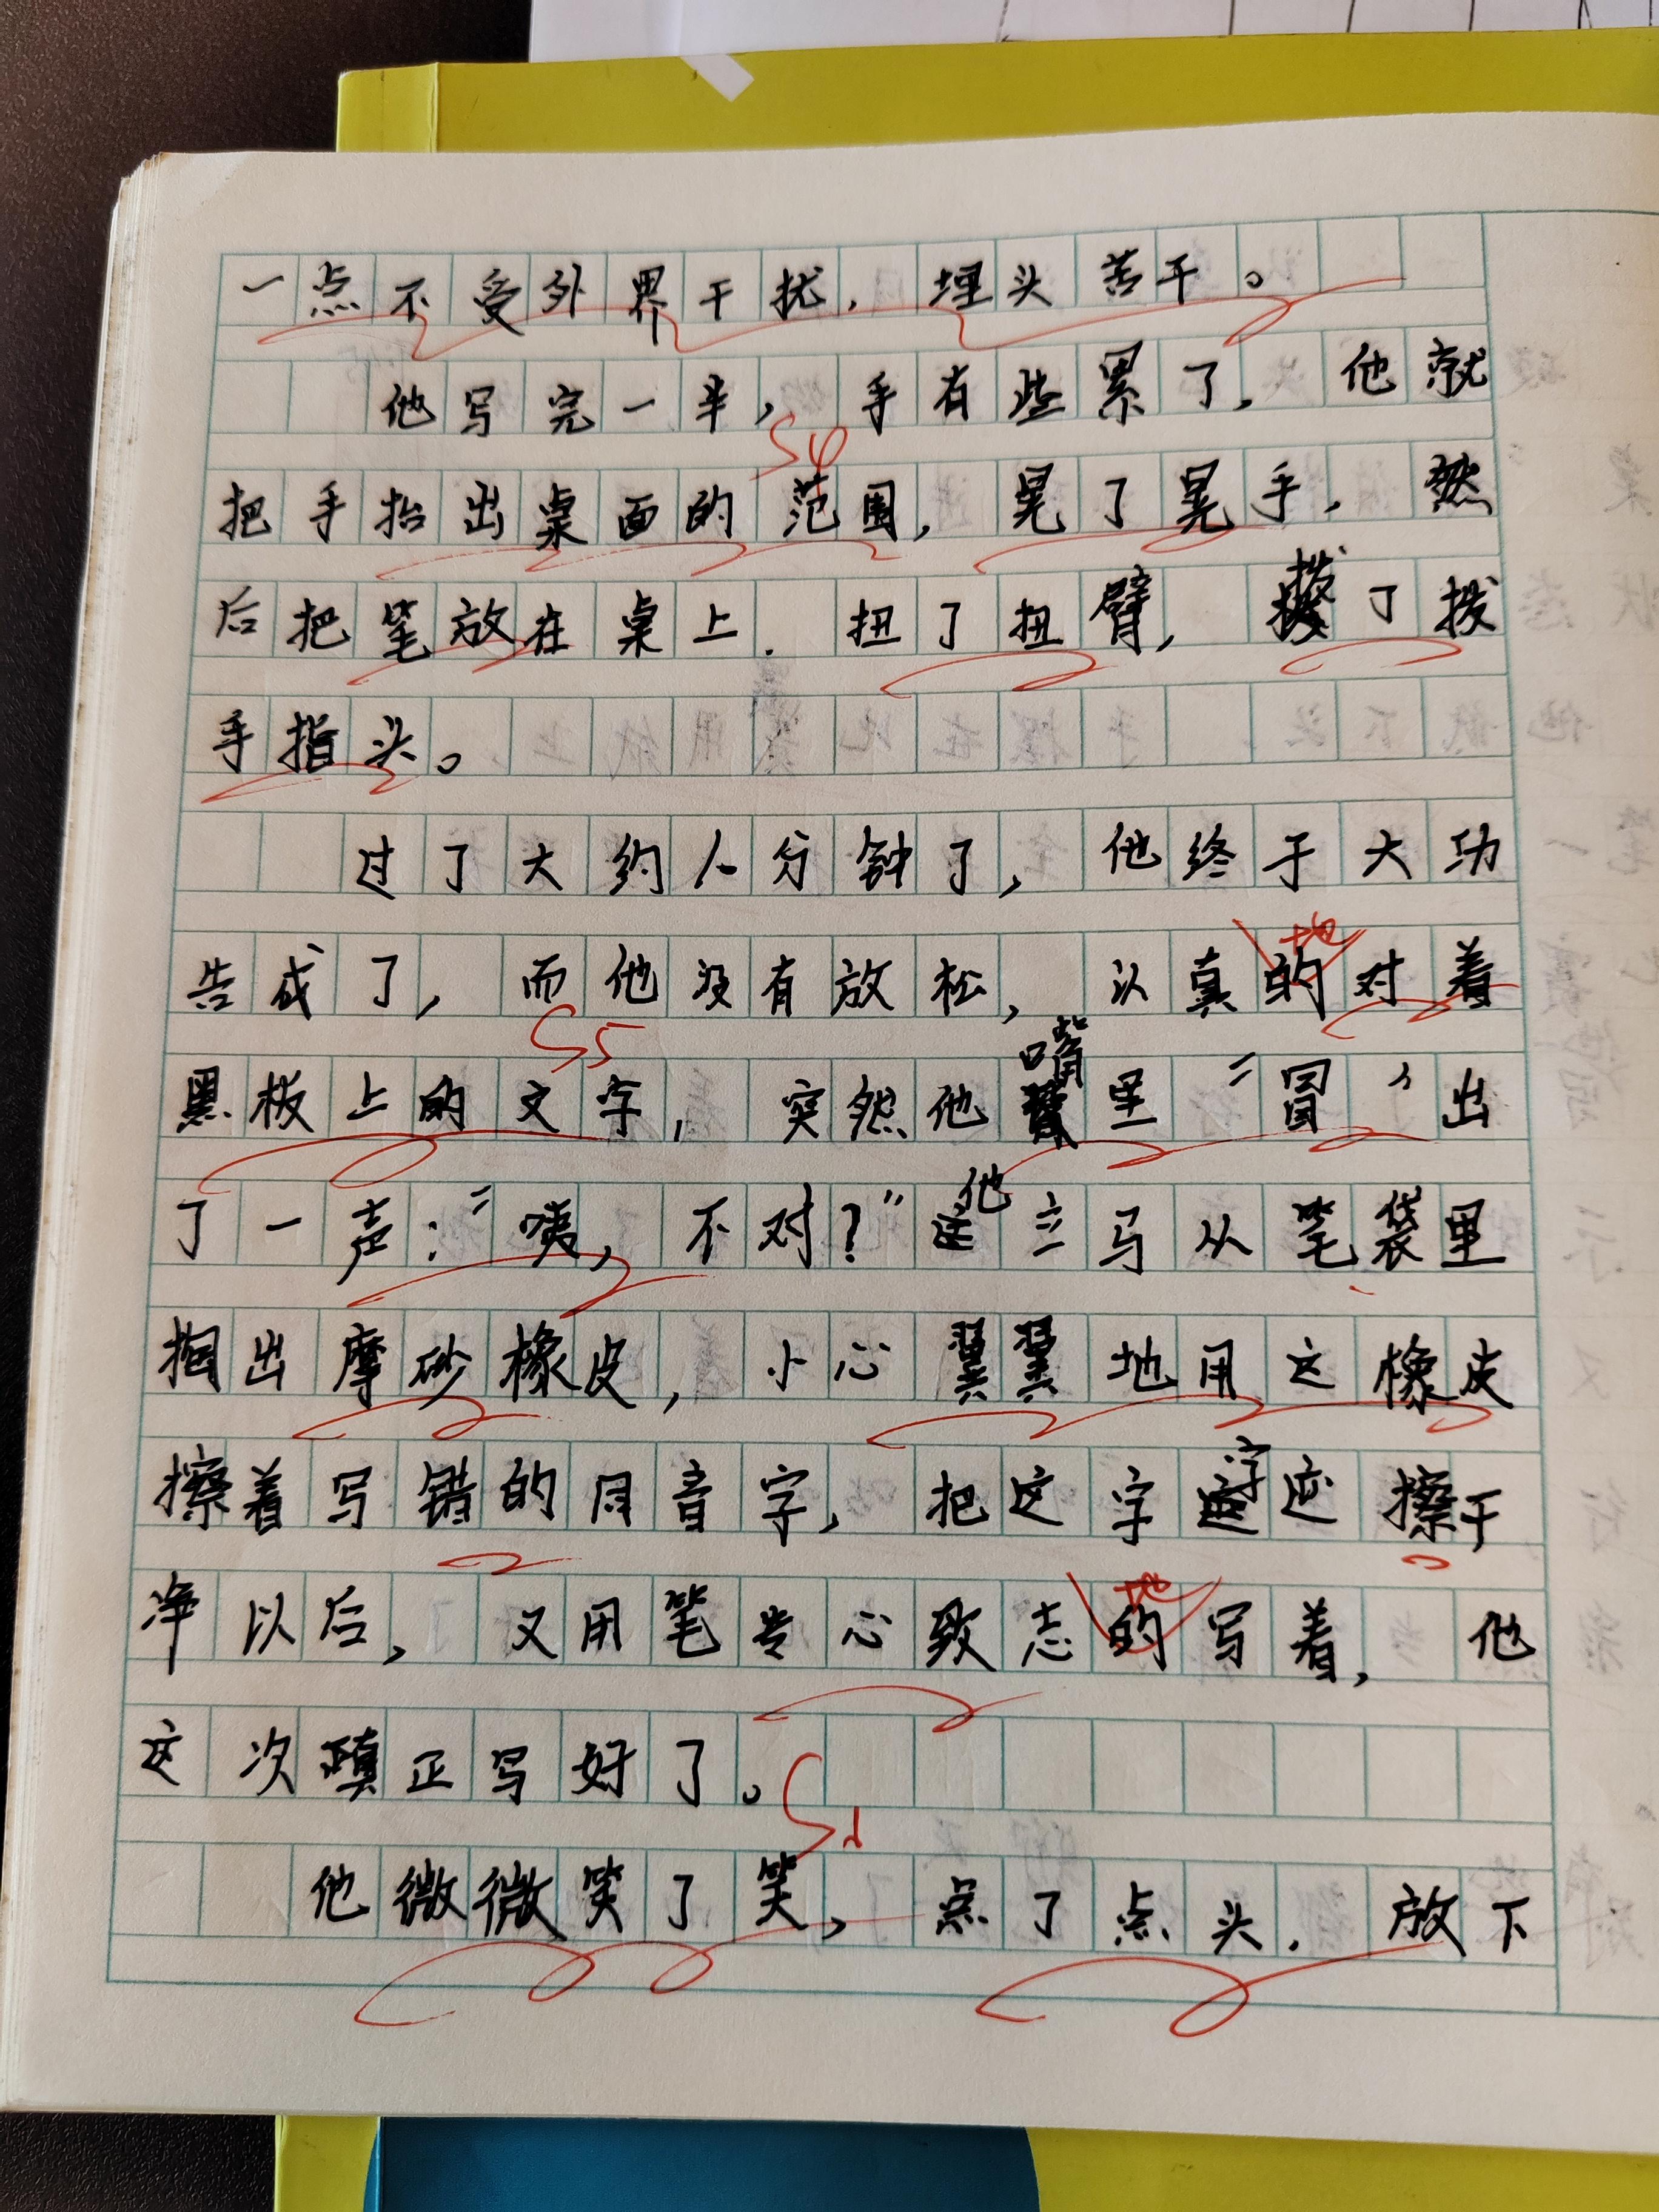 一点不受外界干扰，埋头苦干。
他写完一半，手有些累了，他就
把手抬出桌面的范围，晃了晃手，然
后把笔放在桌上，扭了扭臂，拨了拨
手指头。
过了大约八分钟了，他终于大功
告成了，而他没有放松，认真的对着
地
黑板上的文字，突然他嘴里“冒”出
了一声：“咦，不对？”他立马从笔袋里
掏出摩砂橡皮，小心翼翼地用这橡皮
擦着写错的同音字，把这字字迹擦干
净以后，又用笔专心致志的写着，他
地
这次真正写好了。
他微微笑了笑，点了点头，放下